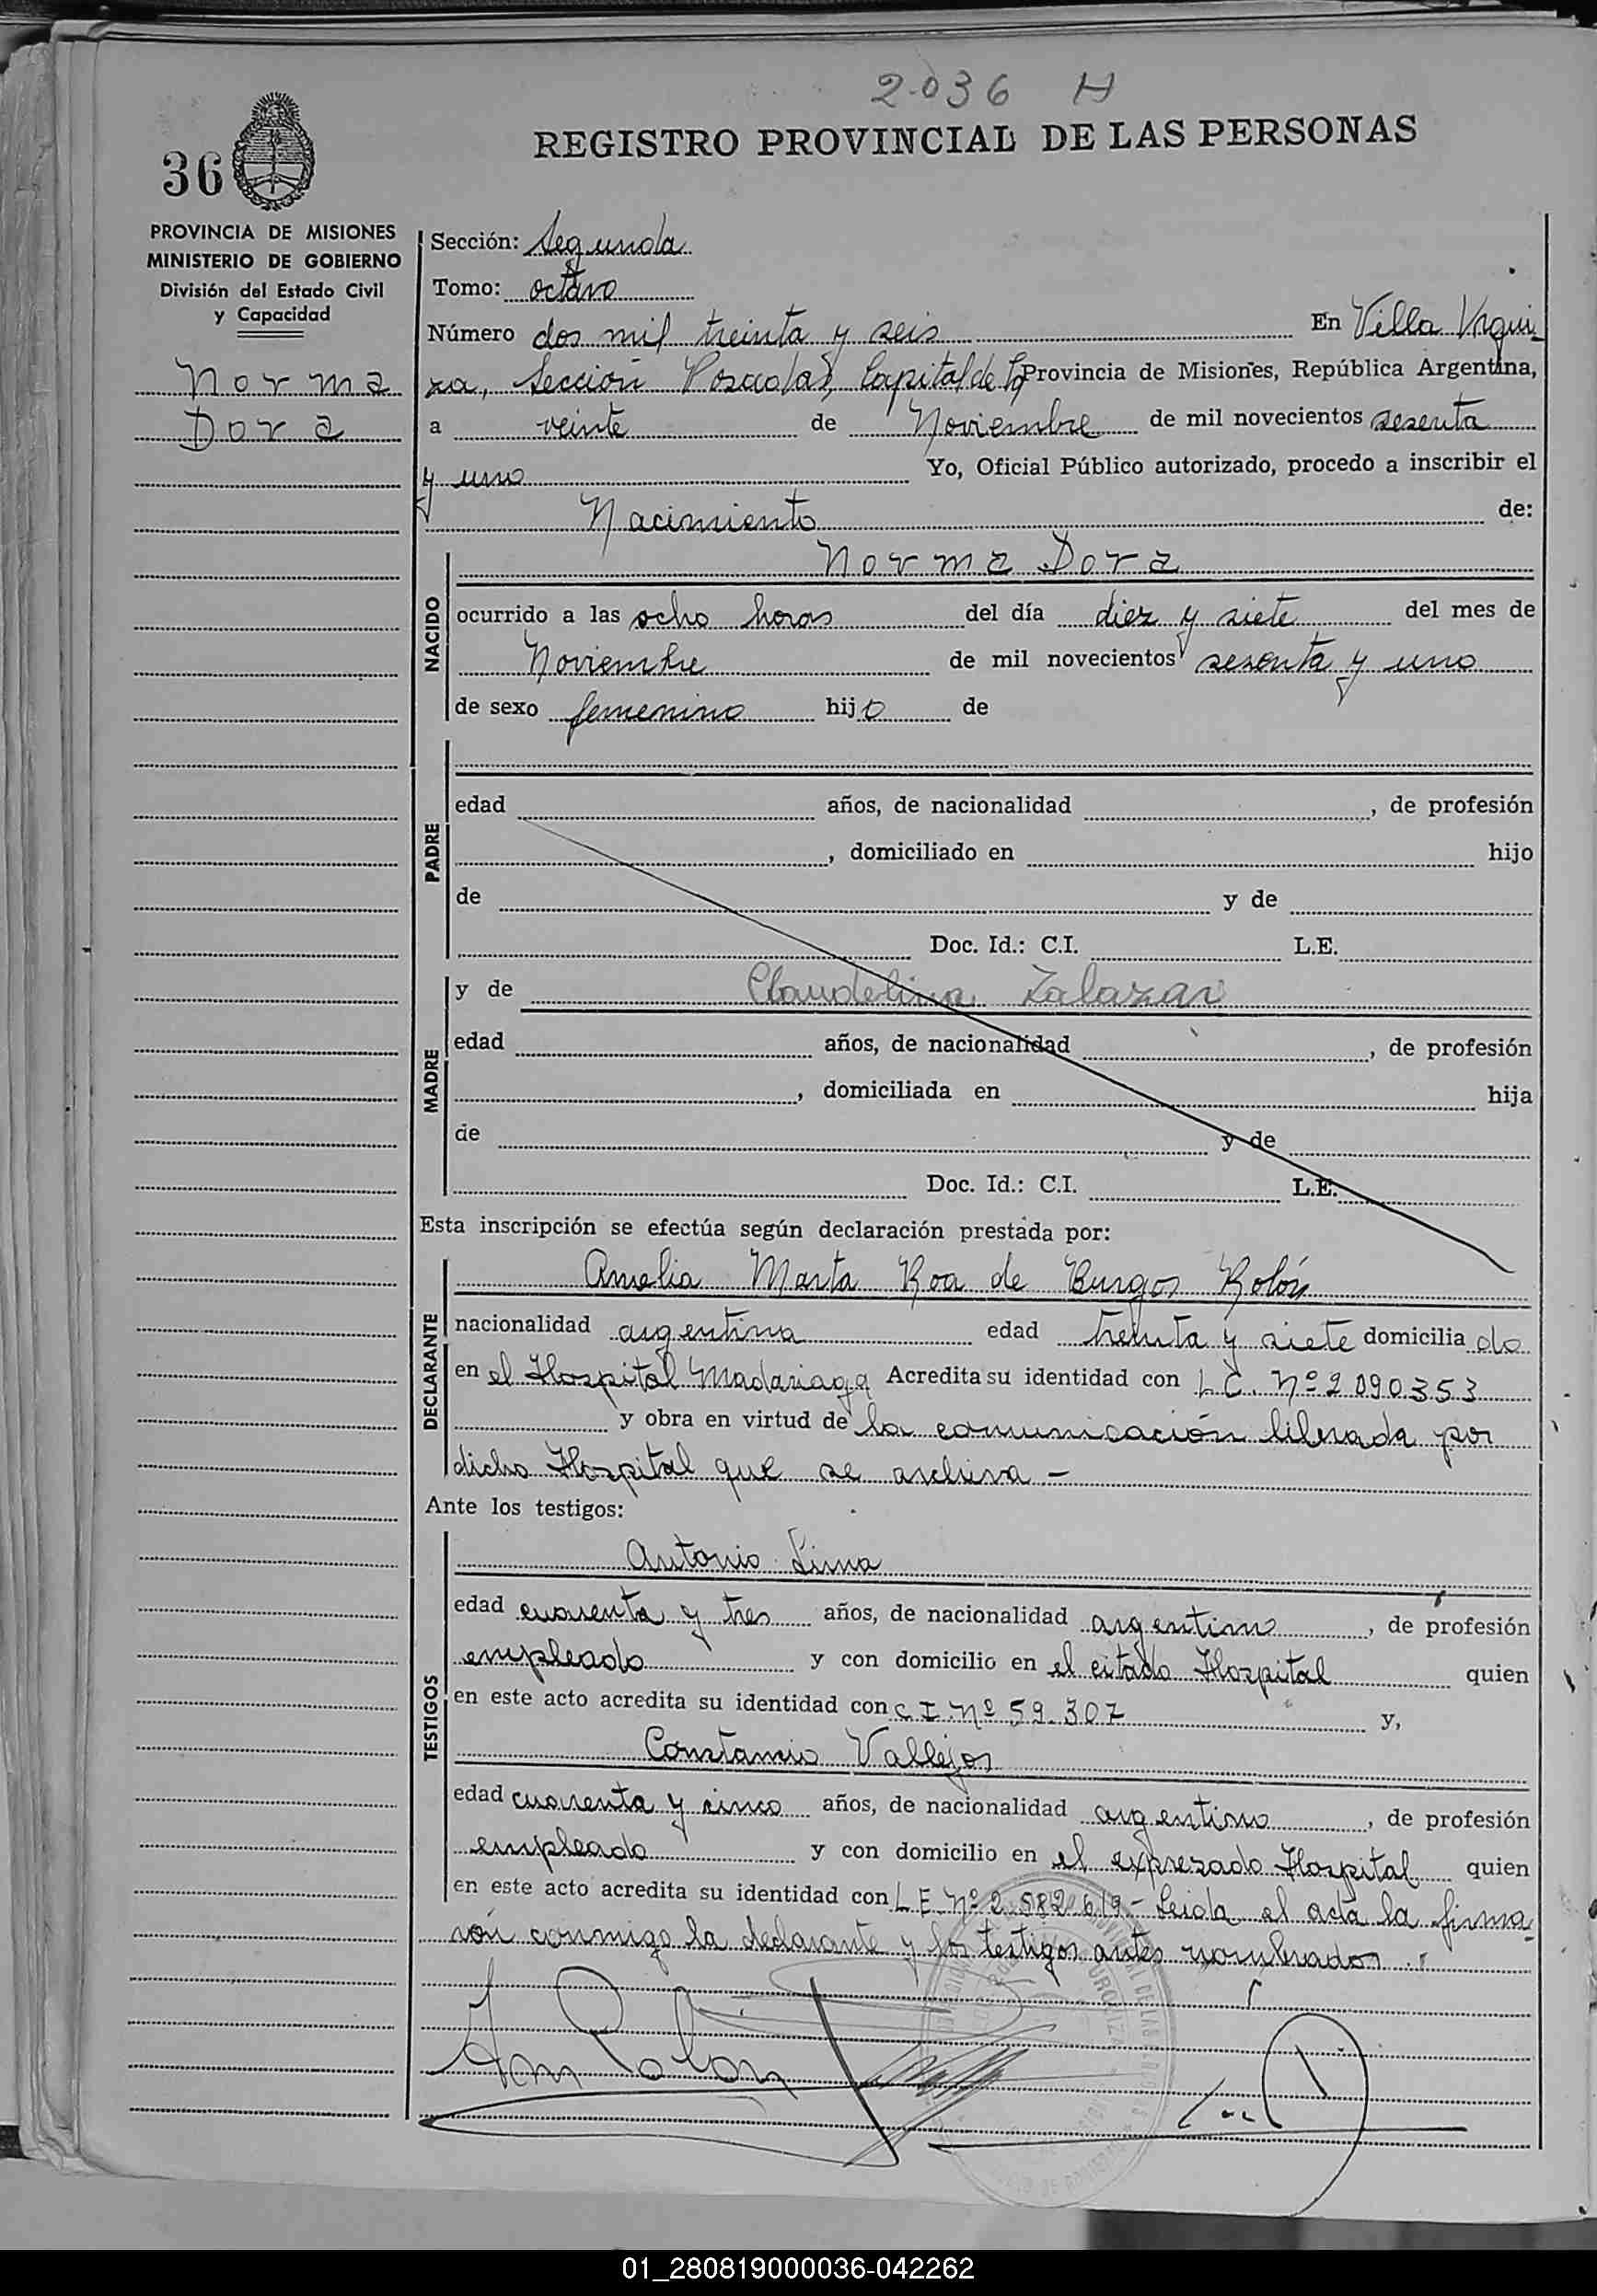 2036 H
REGISTRO PROVINCIAL DE LAS PERSONAS
36
PROVINCIA DE MISIONES
MINISTERIO DE GOBIERNO
División del Estado Civil
y Capacidad
Norma
Dora
Sección: Segunda
Tomo: octavo
Número dos mil treinta y seis En Villa Urqui-
za, Sección Posadas, Capital de la Provincia de Misiones, República Argentina,
a veinte de Noviembre de mil novecientos sesenta
y uno Yo, Oficial Público autorizado, procedo a inscribir el
Nacimiento de:
NACIDO
Norma Dora
ocurrido a las ocho horas del día diez y siete del mes de
Noviembre de mil novecientos sesenta y uno
de sexo femenino hijo de
PADRE
edad años, de nacionalidad , de profesión
, domiciliado en hijo
de y de
Doc. Id.: C.I. L.E.
MADRE
y de Claudelina Zalazar
edad años, de nacionalidad , de profesión
, domiciliada en hija
de y de
Doc. Id.: C.I. L.E.
Esta inscripción se efectúa según declaración prestada por:
DECLARANTE
Amelia Marta Roa de Burgos Rolón
nacionalidad argentina edad treinta y siete domicilia do
en el Hospital Madariaga Acredita su identidad con L C. Nº 2090353
y obra en virtud de la comunicación librada por
dicho Hospital que se archiva -
Ante los testigos:
TESTIGOS
Antonio Lima
edad cuarenta y tres años, de nacionalidad argentino , de profesión
empleado y con domicilio en el citado Hospital quien
en este acto acredita su identidad con C I Nº 59.307 y,
Constancio Vallejos
edad cuarenta y cinco años, de nacionalidad argentino , de profesión
empleado y con domicilio en el expresado Hospital quien
en este acto acredita su identidad con L E. Nº 2.582.619 - Leida el acta la firma-
rón conmigo la declarante y los testigos antes nombrados.
01_280819000036-042262